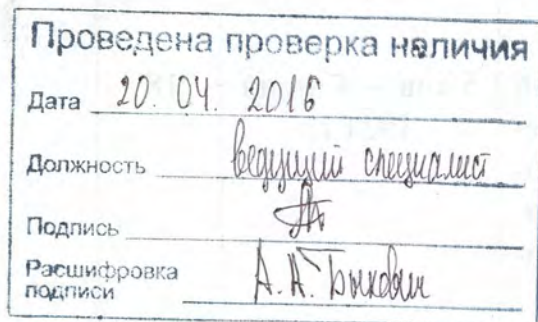 Проведена проверка наличия
Дата 20. 04. 2016
Должность ведущий специалист
Подпись
Расшифровка
подписи А.А.